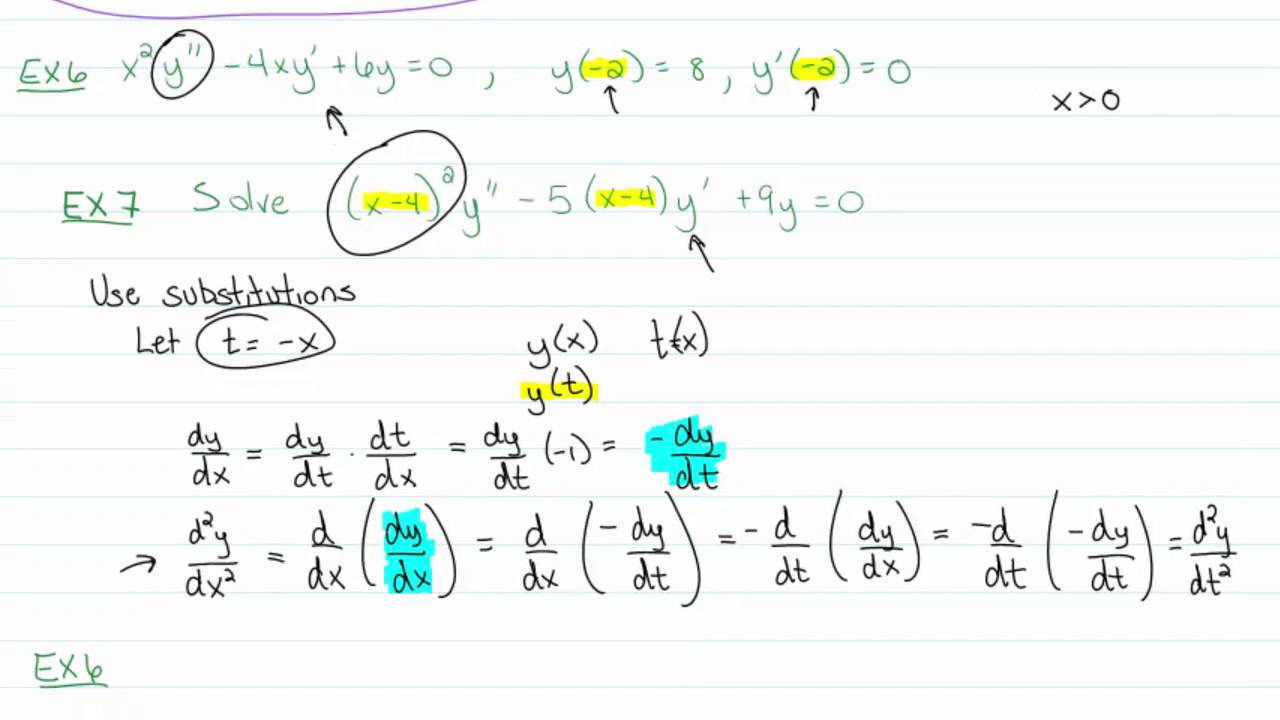 EX6 x²y'' - 4xy' + 6y = 0 , y(-2) = 8 , y'(-2) = 0
x > 0
EX7 Solve (x-4)² y'' - 5(x-4)y' + 9y = 0
Use substitutions
Let t = -x y(x) t(x)
y(t)
dy/dx = dy/dt · dt/dx = dy/dt (-1) = -dy/dt
→ d²y/dx² = d/dx (dy/dx) = d/dx (-dy/dt) = -d/dt (dy/dx) = -d/dt (-dy/dt) = d²y/dt²
EX6